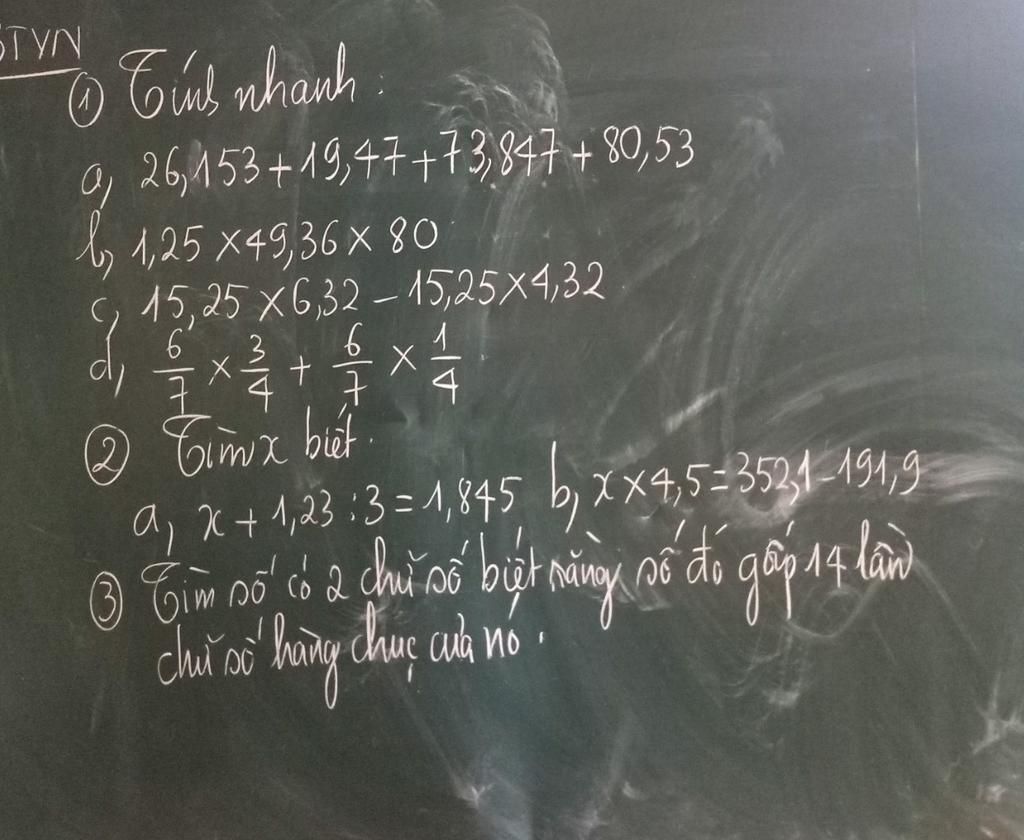 STYN
① Tính nhanh:
a, 26,153 + 19,47 + 73,847 + 80,53
b, 1,25 × 49,36 × 80
c, 15,25 × 6,32 – 15,25 × 4,32
d, 6/7 × 3/4 + 6/7 × 1/4
② Tìm x biết.
a, x + 1,23 : 3 = 1,845 b, x × 4,5 = 352,1 – 191,9
③ Tìm số có 2 chữ số biết rằng số đó gấp 14 lần
chữ số hàng chục của nó.